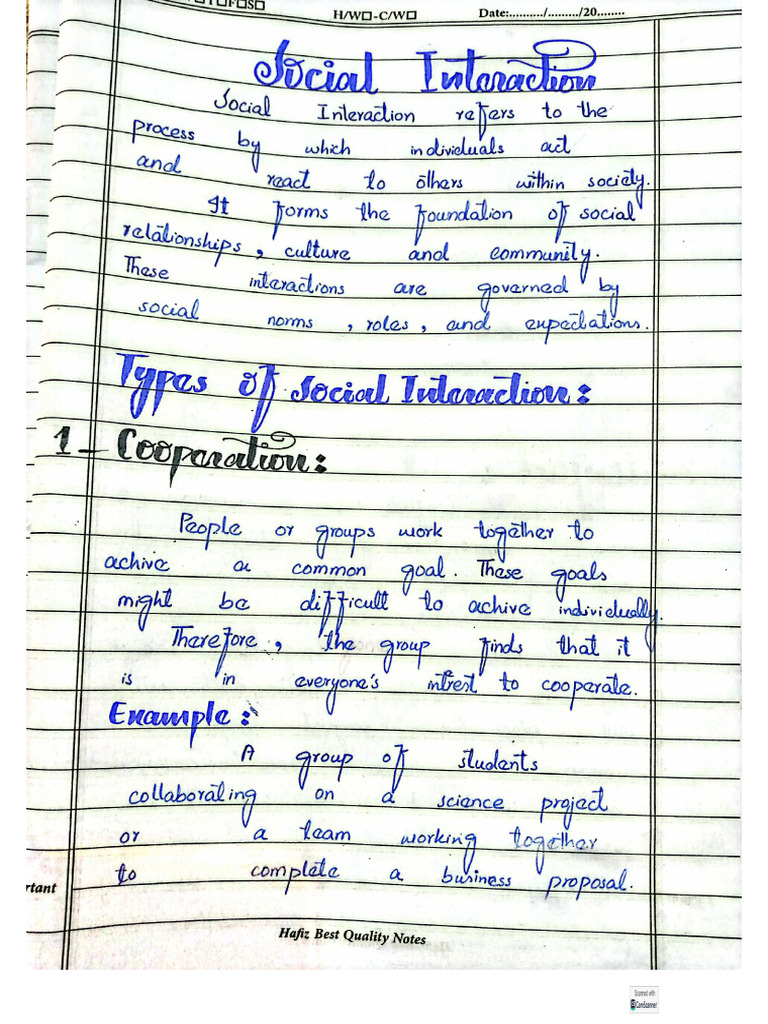 H/W□-C/W□ Date:........../........./20........
Social Interaction
Social Interaction refers to the
process by which individuals act
and react to others within society.
It forms the foundation of social
relationships, culture and community.
These interactions are governed by
social norms, roles, and expectations.
Types of Social Interaction:
1- Cooparation:
People or groups work together to
achive a common goal. These goals
might be difficult to achive individually.
Therefore, the group finds that it
is in everyone's intrest to cooparate.
Example:
A group of students
collaborating on a science project
or a team working together
to complete a business proposal.
rtant
Hafiz Best Quality Notes
Scanned with
CamScanner